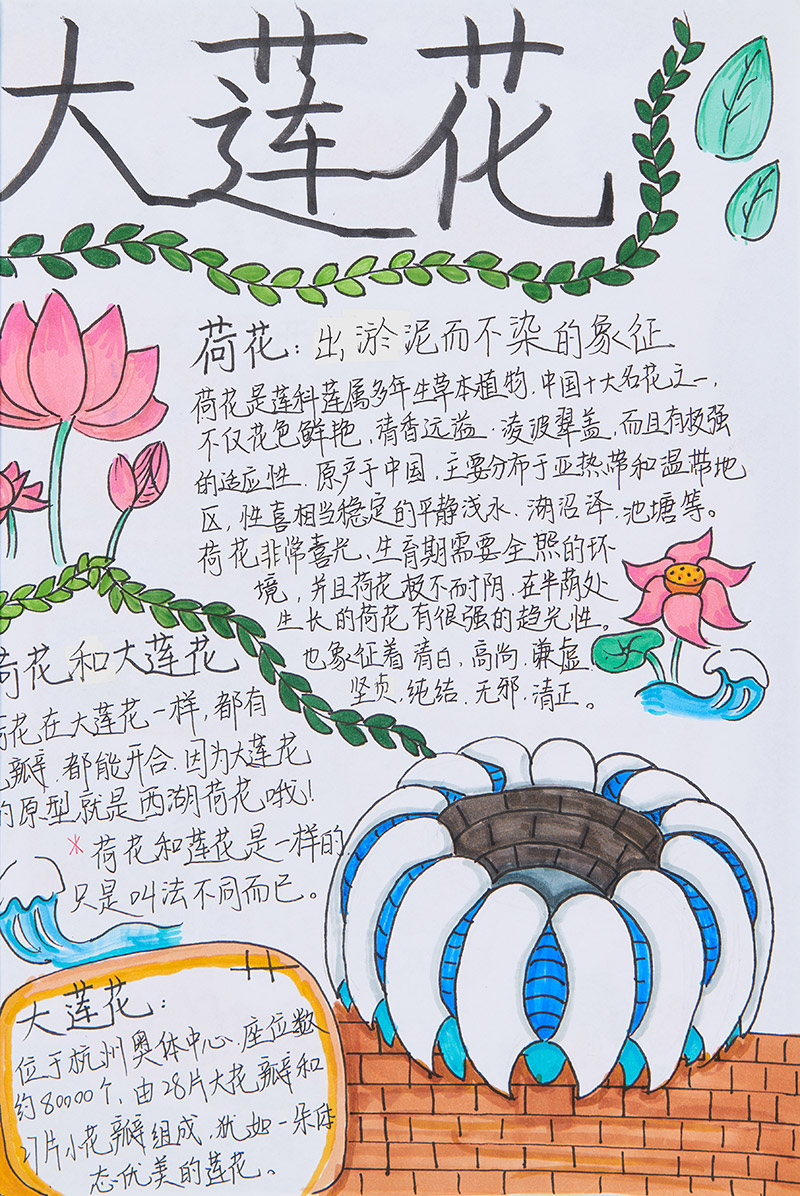 大莲花
荷花：出淤泥而不染的象征
荷花是莲科莲属多年生草本植物.中国十大名花之一，
不仅花色鲜艳，清香远溢；凌波翠盖，而且有极强
的适应性.原产于中国，主要分布于亚热带和温带地
区，性喜相当稳定的平静浅水.湖沼泽.池塘等。
荷花非常喜光，生育期需要全照的环
境，并且荷花极不耐阴.在半荫处
生长的荷花有很强的趋光性。
也象征着清白，高尚.谦虚.
坚贞.纯结.无邪.清正。
荷花和大莲花
荷花在大莲花一样，都有
瓣.都能开合.因为大莲花
的原型就是西湖荷花哦！
*荷花和莲花是一样的.
只是叫法不同而已。
大莲花：
位于杭州奥体中心.座位数
约80000个，由28片大花瓣和
27片小花瓣组成，犹如一朵体
态优美的莲花。